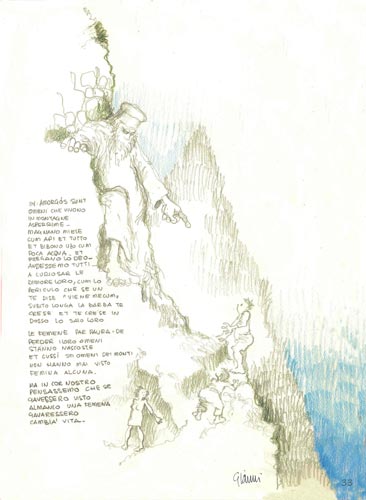 IN ABORGÒS SONT
OMENI CHE VIVONO
IN MONTAGNE
ASPERRIME —
MAGNANO MIELE
CUM API ET TUTTO
ET BIBONO VIN CUM
POCA ACQUA, ET
PREGANO LO DEO —
ANDESSEMO TUTTI
A CURIOSAR LE
DIMORE LORO, CUM LO
PERICULO CHE SE UN
TE DISE "VIENE MECUM",
SUBITO LONGA LA BARBA TE
CRESE ET TE CRESE IN
DOSSO LO SAIO LORO
LE FEMENE PAR PAURA DE
PERDER LI LORO OMENI
STANNO NASCOSTE
ET CUSSÌ 'STI OMENI DEI MONTI
NON HANNO MAI VISTO
FEMINA ALCUNA.
MA IN COR NOSTRO
PENSASSEMO CHE SE
GAVESSERO VISTO
ALMANCO UNA FEMENA
GAVARESSERO
CAMBIÀ VITA —
Gianni
33